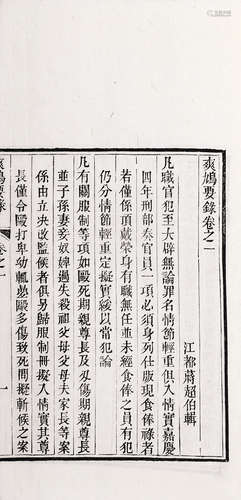 爽鳩要錄卷之一
江都蔣超伯輯
凡職官犯至大辟無論罪名情節輕重俱入情實嘉慶
四年刑部奏官員一項必須身列仕版現食俸祿者
若僅係頂戴榮身有職任並未經食俸之員有犯
仍分情節輕重定擬緩實以常犯論
凡有關服制等項如毆死期親尊長及刃傷期親尊長
並子孫妻妾奴婢過失殺祖父母父母夫家長等案
係由立決改監候者俱另歸服制冊擬入情實其尊
長僅令毆打卑幼輒疊毆多傷致死問擬斬候之案
爽鳩要錄
卷之一
一